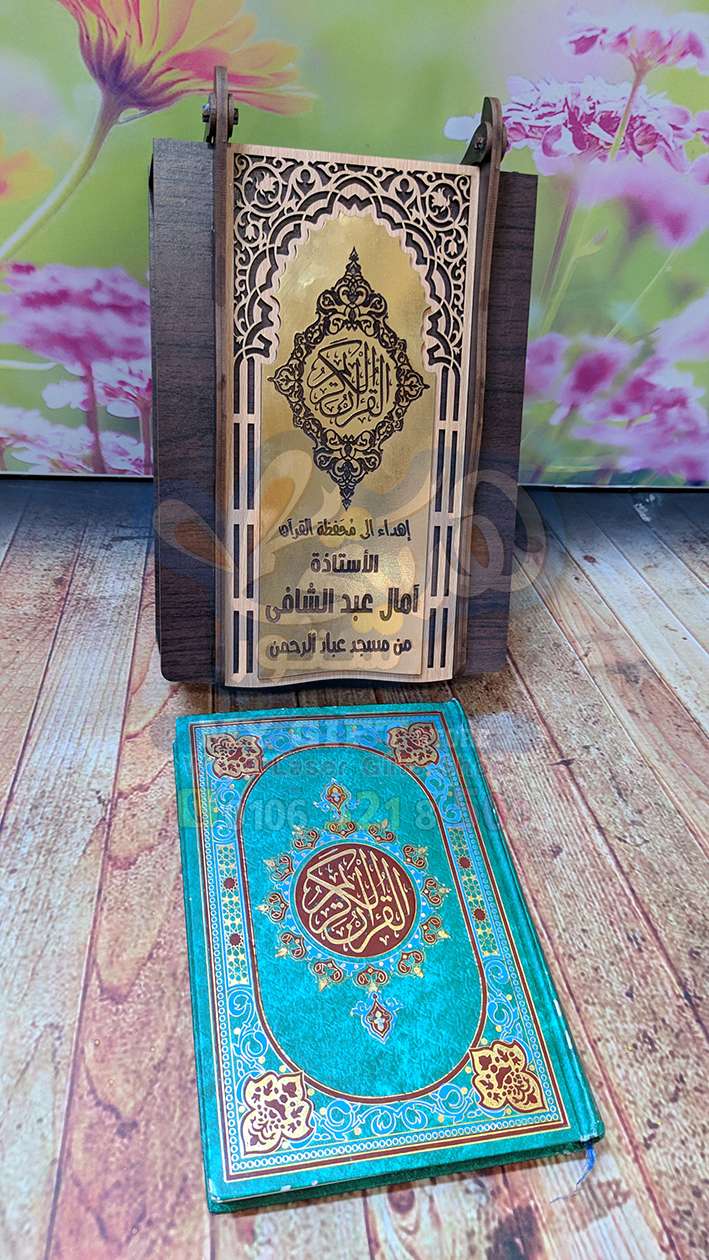 القرآن الكريم
إهداء الى مُحَفِظة القرآن
الأستاذة
آمال عبد الشافى
من مسجد عباد الرحمن
Laser
106 121 8
القرآن الكريم